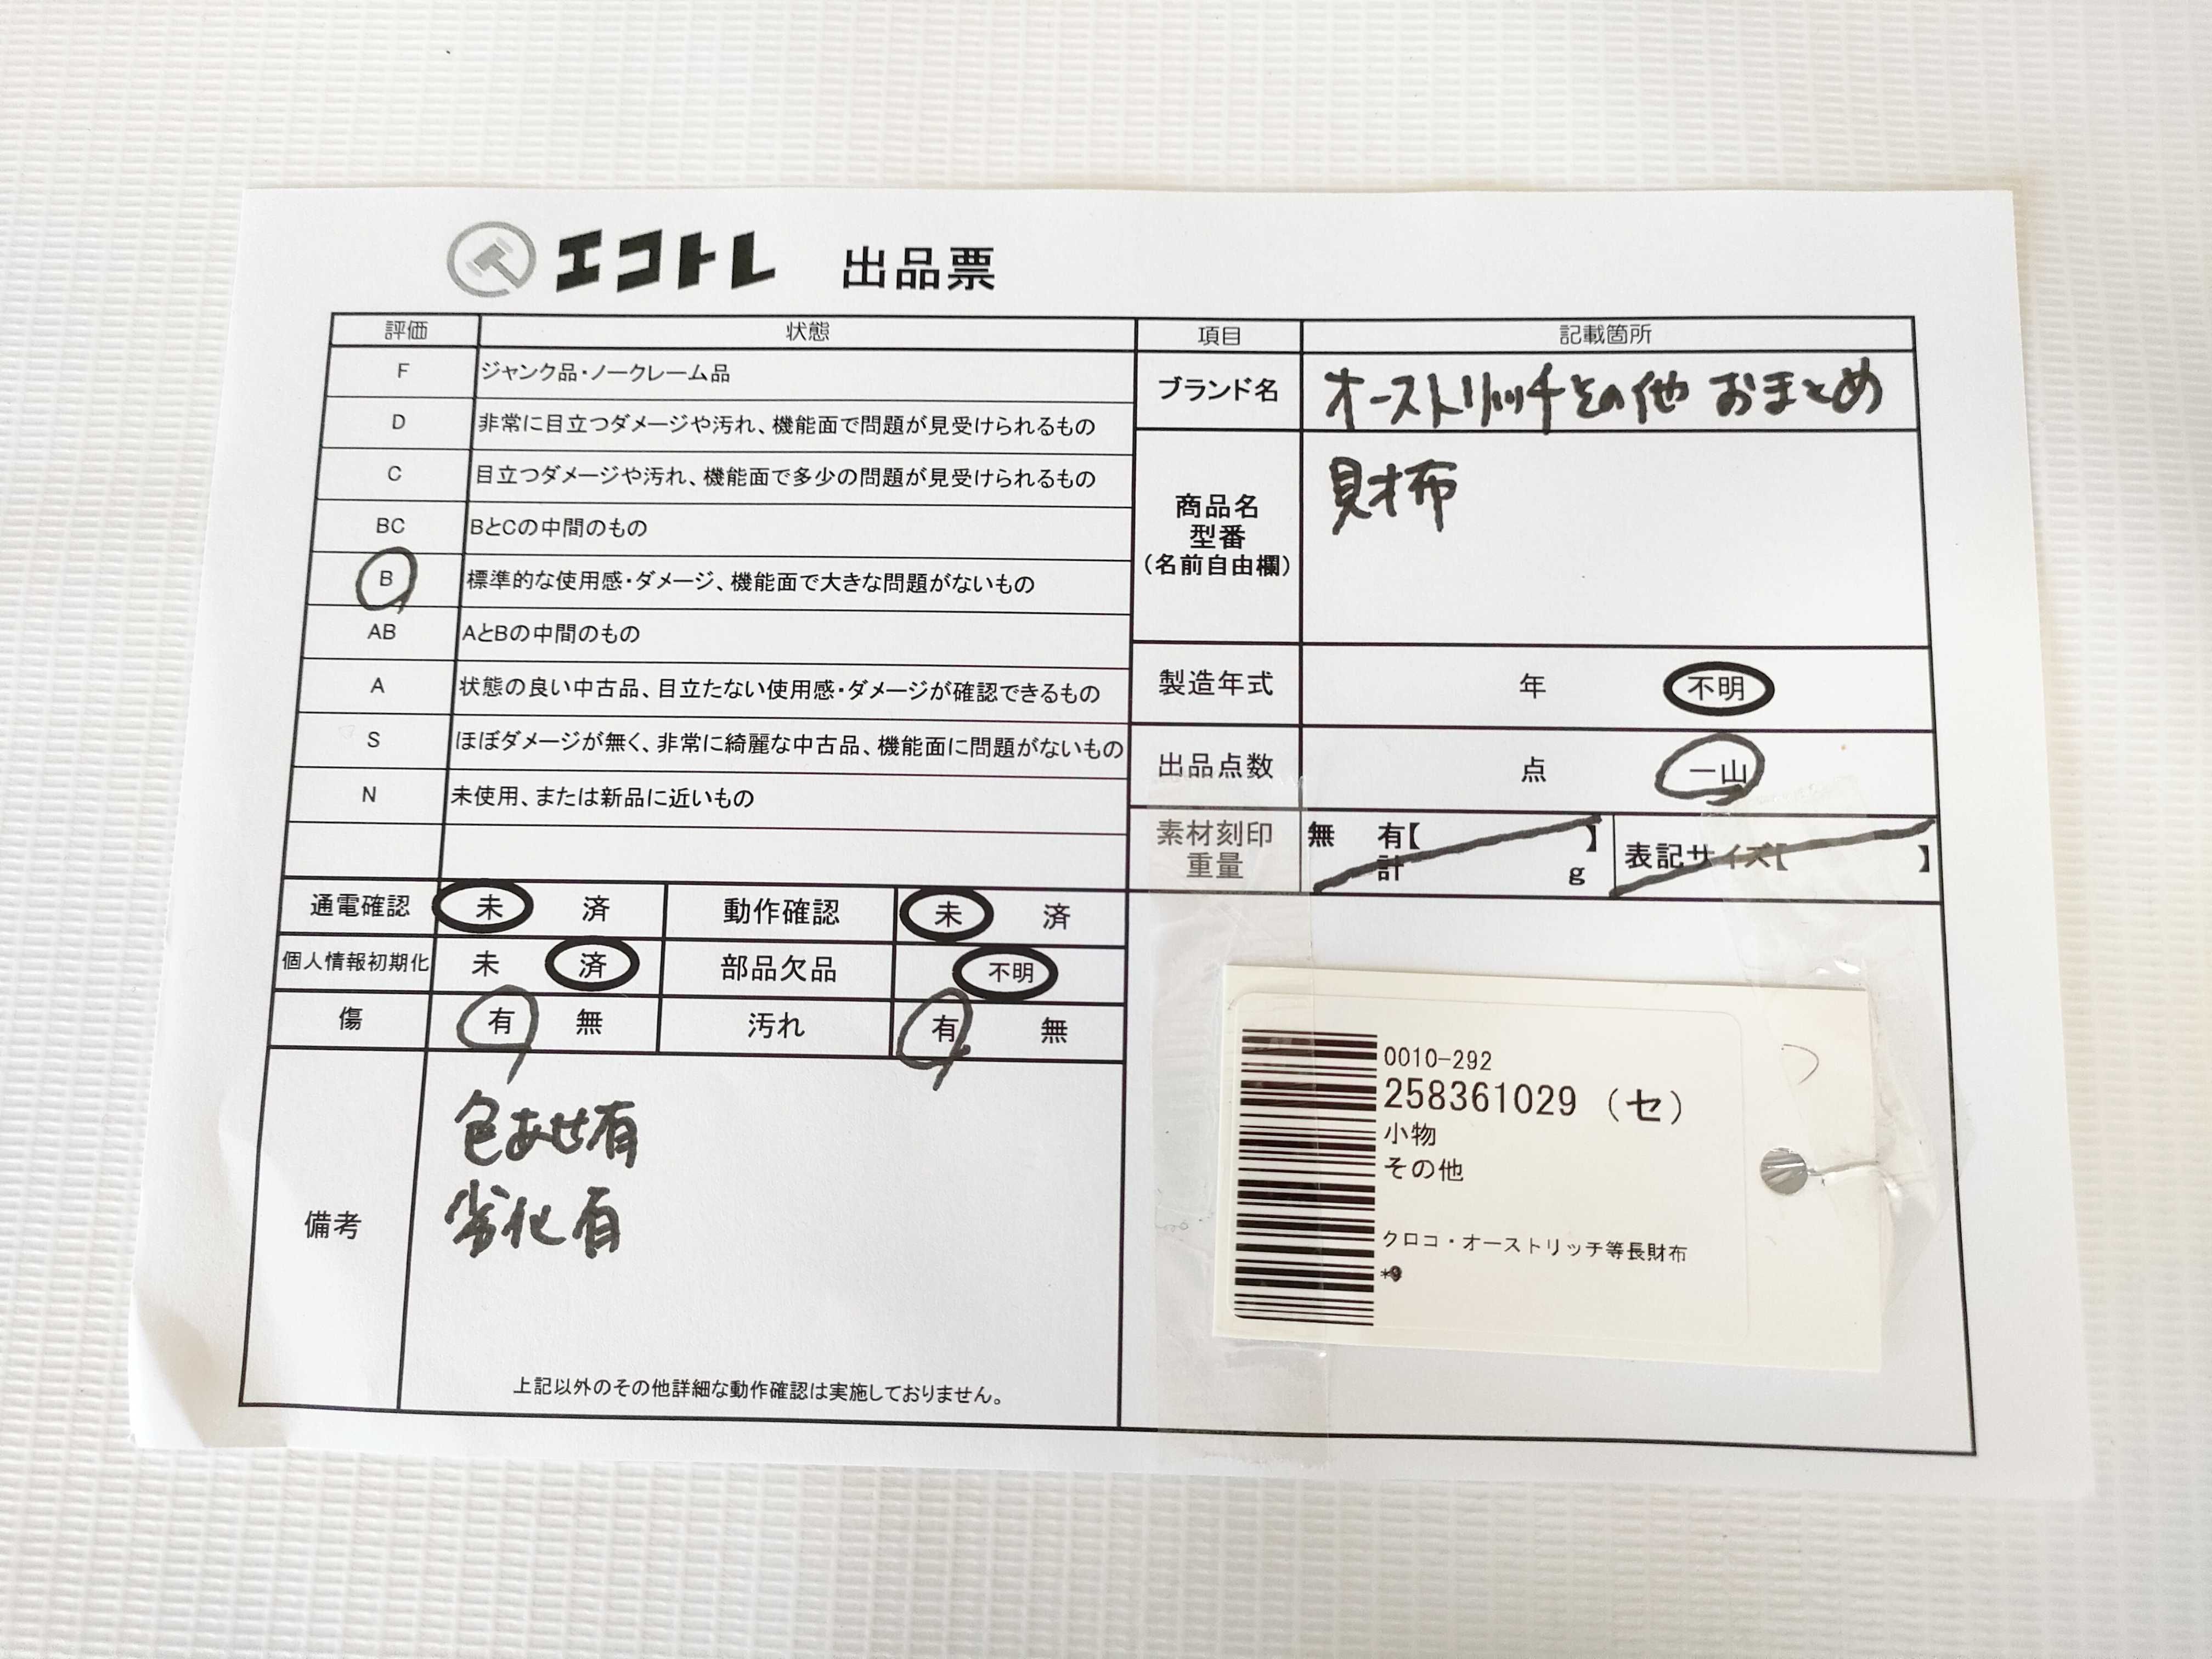 エコトレ 出品票
評価 状態
F ジャンク品・ノークレーム品
D 非常に目立つダメージや汚れ、機能面で問題が見受けられるもの
C 目立つダメージや汚れ、機能面で多少の問題が見受けられるもの
BC BとCの中間のもの
B 標準的な使用感・ダメージ、機能面で大きな問題がないもの
AB AとBの中間のもの
A 状態の良い中古品、目立たない使用感・ダメージが確認できるもの
S ほぼダメージが無く、非常に綺麗な中古品、機能面に問題がないもの
N 未使用、または新品に近いもの
通電確認 未 済 動作確認 未 済
個人情報初期化 未 済 部品欠品 不明
傷 有 無 汚れ 有 無
備考
色あせ有
劣化有
上記以外のその他詳細な動作確認は実施しておりません。
項目 記載箇所
ブランド名 オーストリッチその他 おまとめ
商品名
型番
(名前自由欄)
財布
製造年式 年 不明
出品点数 点 一山
素材刻印
重量
無 有【 】
計 g
表記サイズ【 】
0010-292
258361029 (セ)
小物
その他
クロコ・オーストリッチ等長財布
*9